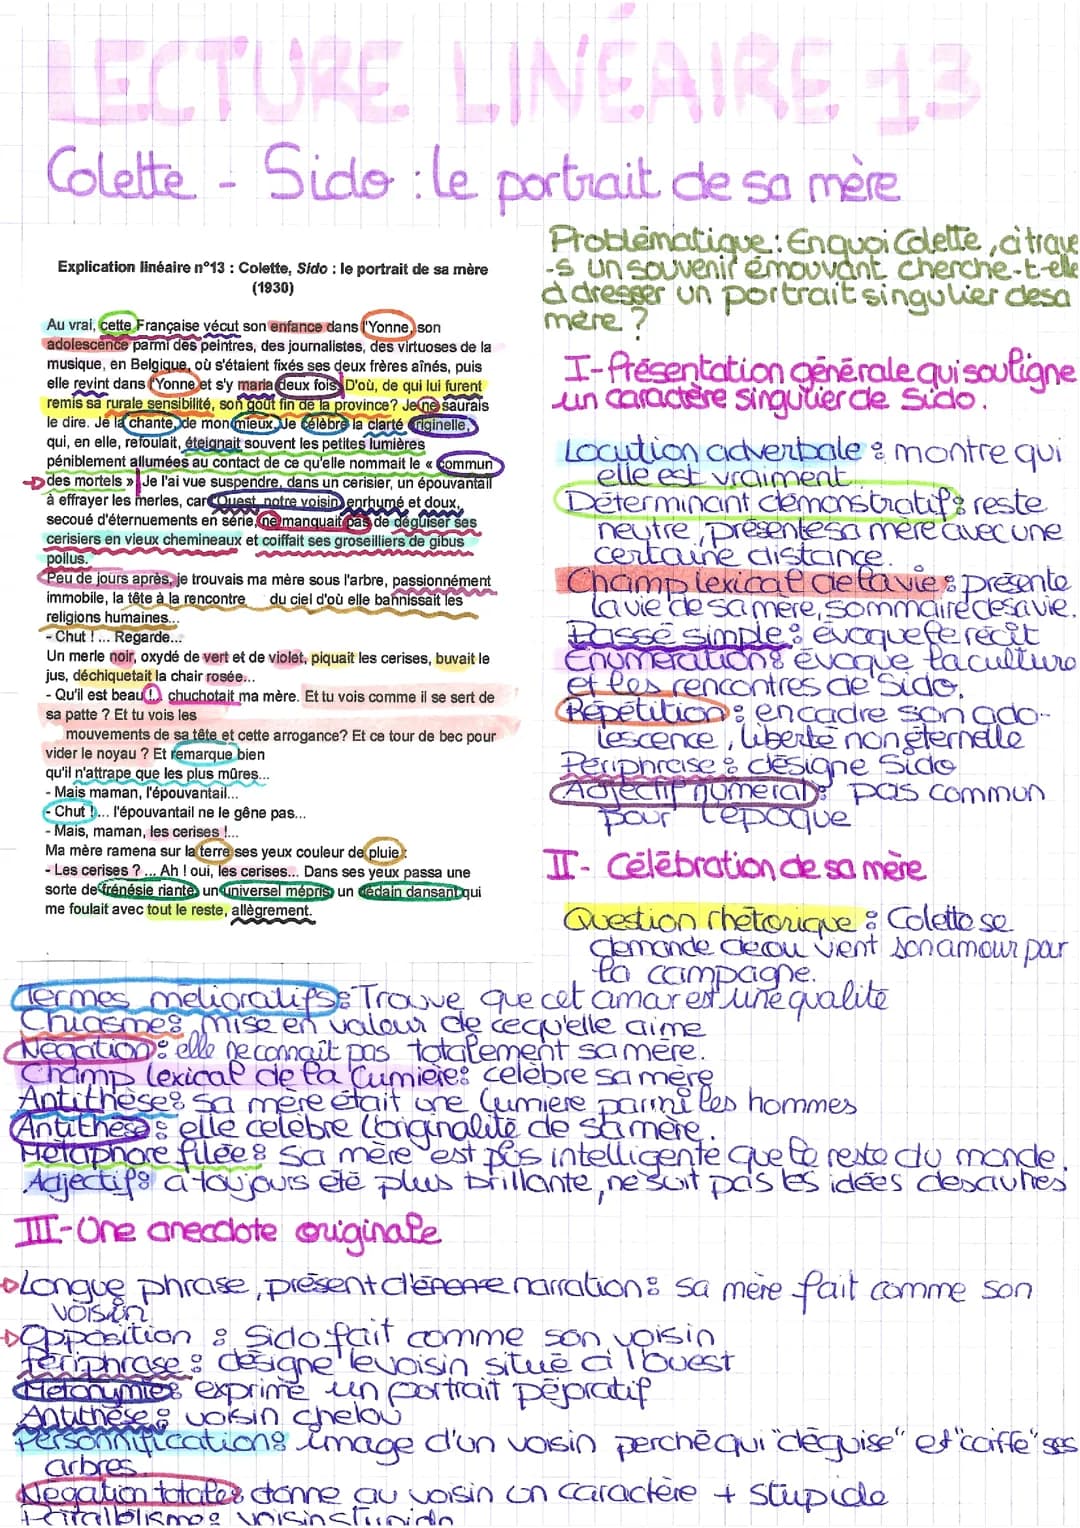 LECTURE LINÉAIRE 13
Colette - Sido : le portrait de sa mère
Explication linéaire n°13 : Colette, Sido : le portrait de sa mère
(1930)
Au vrai, cette Française vécut son enfance dans l'Yonne, son
adolescence parmi des peintres, des journalistes, des virtuoses de la
musique, en Belgique, où s'étaient fixés ses deux frères aînés, puis
elle revint dans l'Yonne et s'y maria deux fois. D'où, de qui lui furent
remis sa rurale sensibilité, son goût fin de la province? Je ne saurais
le dire. Je la chante, de mon mieux. Je célèbre la clarté originelle,
qui, en elle, refoulait, éteignait souvent les petites lumières
péniblement allumées au contact de ce qu'elle nommait le « commun
des mortels ». Je l'ai vue suspendre, dans un cerisier, un épouvantail
à effrayer les merles, car l'Ouest, notre voisin, enrhumé et doux,
secoué d'éternuements en série, ne manquait pas de déguiser ses
cerisiers en vieux chemineaux et coiffait ses groseilliers de gibus
poilus.
Peu de jours après, je trouvais ma mère sous l'arbre, passionnément
immobile, la tête à la rencontre du ciel d'où elle bannissait les
religions humaines...
- Chut !... Regarde...
Un merle noir, oxydé de vert et de violet, piquait les cerises, buvait le
jus, déchiquetait la chair rosée...
- Qu'il est beau !... chuchotait ma mère. Et tu vois comme il se sert de
sa patte ? Et tu vois les
mouvements de sa tête et cette arrogance? Et ce tour de bec pour
vider le noyau ? Et remarque bien
qu'il n'attrape que les plus mûres...
- Mais maman, l'épouvantail...
- Chut !... l'épouvantail ne le gêne pas...
- Mais, maman, les cerises !...
Ma mère ramena sur la terre ses yeux couleur de pluie :
- Les cerises ? ... Ah ! oui, les cerises... Dans ses yeux passa une
sorte de frénésie riante, un universel mépris, un dédain dansant qui
me foulait avec tout le reste, allègrement.
Problématique : En quoi Colette, à trave
-s un souvenir émouvant cherche-t-elle
à dresser un portrait singulier de sa
mère ?
I- Présentation générale qui souligne
un caractère singulier de Sido.
Locution adverbale : montre qui
elle est vraiment
Déterminant démonstratif : reste
neutre, présente sa mère avec une
certaine distance.
Champ lexical de la vie : présente
la vie de sa mère, sommaire de sa vie.
Passé simple : évoque le récit
Énumération : évoque la culture
et les rencontres de Sido.
Répétition : encadre son ado-
lescence, liberté non éternelle
Périphrase : désigne Sido
Adjectif numéral : pas commun
pour l'époque
II- Célébration de sa mère
Question rhétorique : Colette se
demande de où vient son amour par
la campagne.
Termes mélioratifs : Trouve que cet amar est une qualité
Chiasme : mise en valeur de ce qu'elle aime
Négation : elle ne connaît pas totalement sa mère.
Champ lexical de la lumière : célèbre sa mère
Antithèse : sa mère était une lumière parmi les hommes
Antithèse : elle célèbre l'originalité de sa mère.
Métaphore filée : sa mère est plus intelligente que le reste du monde.
Adjectif : a toujours été plus brillante, ne suit pas les idées des autres
III- Une anecdote originale
Longue phrase, présent d' narration : sa mère fait comme son
voisin
Opposition : Sido fait comme son voisin
Périphrase : désigne le voisin situé à l'ouest
Métonymie : exprime un portrait péjoratif
Antithèse : voisin chelou
Personnification : image d'un voisin perché qui "déguise" et "coiffe" ses
arbres.
Négation totale : donne au voisin un caractère + stupide
Parallélisme : voisin stupide